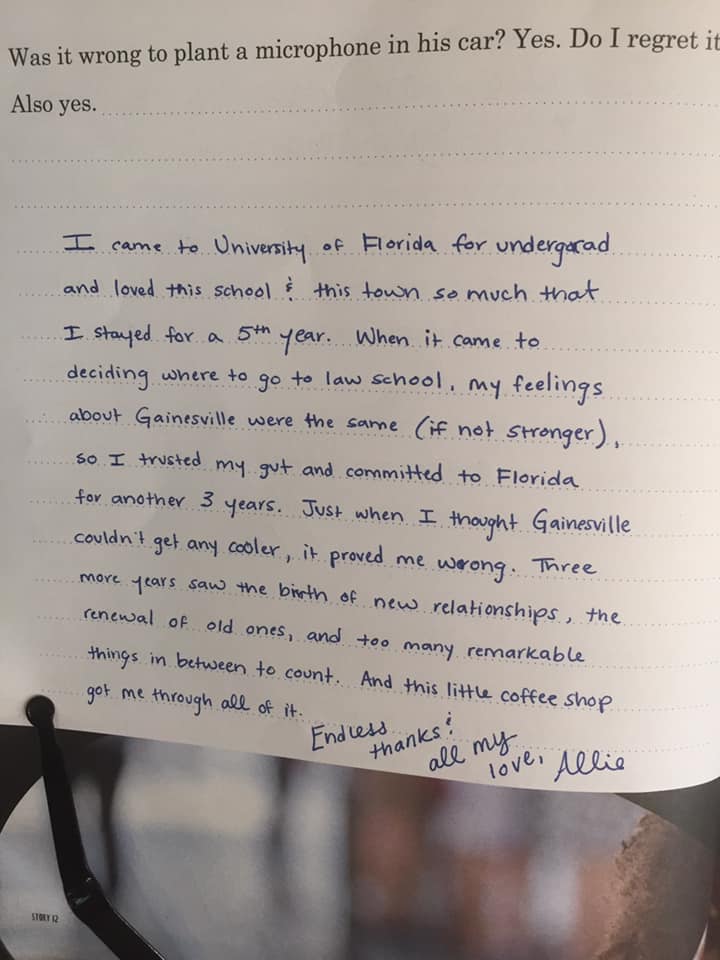 Was it wrong to plant a microphone in his car? Yes. Do I regret it
Also yes.
I came to University of Florida for undergarad
and loved this school & this town so much that
I stayed for a 5th year. When it came to
deciding where to go to law school, my feelings
about Gainesville were the same (if not stronger),
so I trusted my gut and committed to Florida
for another 3 years. Just when I thought Gainesville
couldn't get any cooler, it proved me wrong. Three
more years saw the birth of new relationships, the
renewal of old ones, and too many remarkable
things in between to count. And this little coffee shop
got me through all of it.
Endless
thanks &
all my
love, Allie
STORY 12